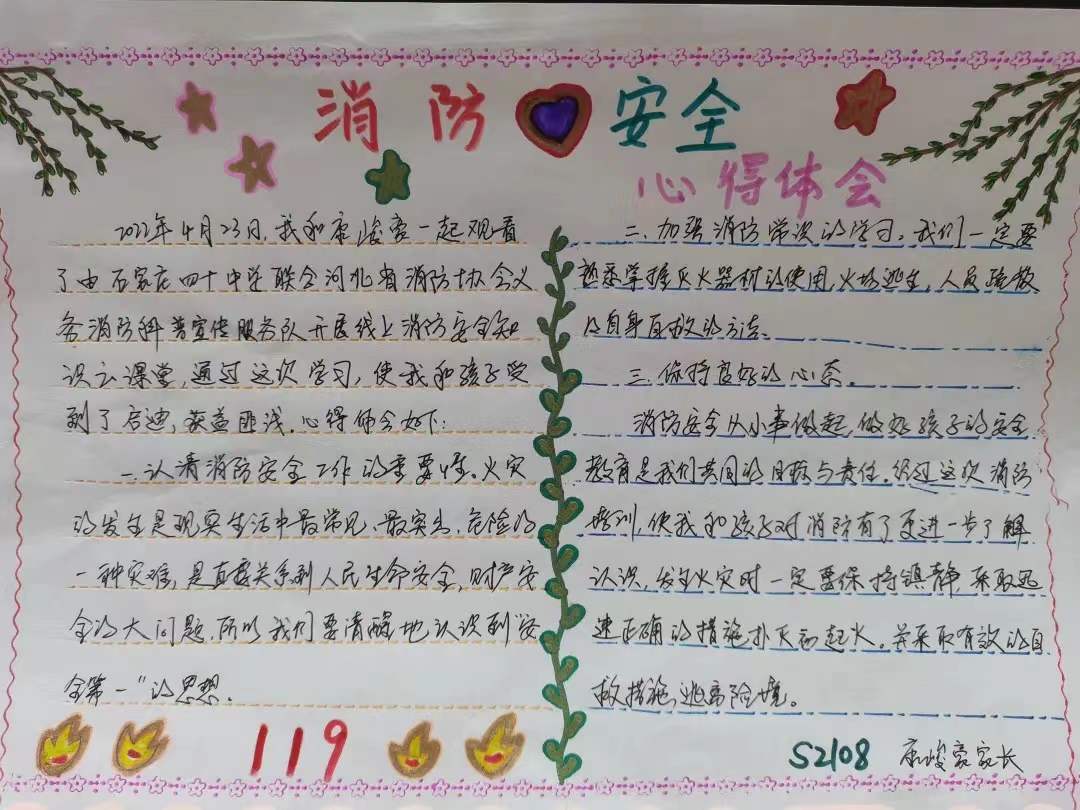 消防安全
心得体会
2022年4月23日,我和康峻豪一起观看
了由石家庄四十中学联合河北省消防协会义
务消防科普宣传服务队开展线上消防安全知
识云课堂,通过这次学习,使我和孩子受
到了启迪,获益匪浅,心得体会如下:
一、认清消防安全工作的重要性。火灾
的发生是现实生活中最常见、最突出、危险的
一种灾难,是直接关系到人民生命安全,财产安
全的大问题,所以我们要清醒地认识到"安
全第一"的思想.
二、加强消防常识的学习,我们一定要
熟悉掌握灭火器材的使用,火场逃生,人员疏散
的自身自救的方法.
三、保持良好的心态.
消防安全从小事做起,做好孩子的安全
教育是我们共同的目标与责任.经过这次消防
培训,使我和孩子对消防有了更进一步了解
认识,发生火灾时一定要保持镇静,采取迅
速正确的措施扑灭初起火。并采取有效的自
救措施,逃离险境。
119
S2108 康峻豪家长